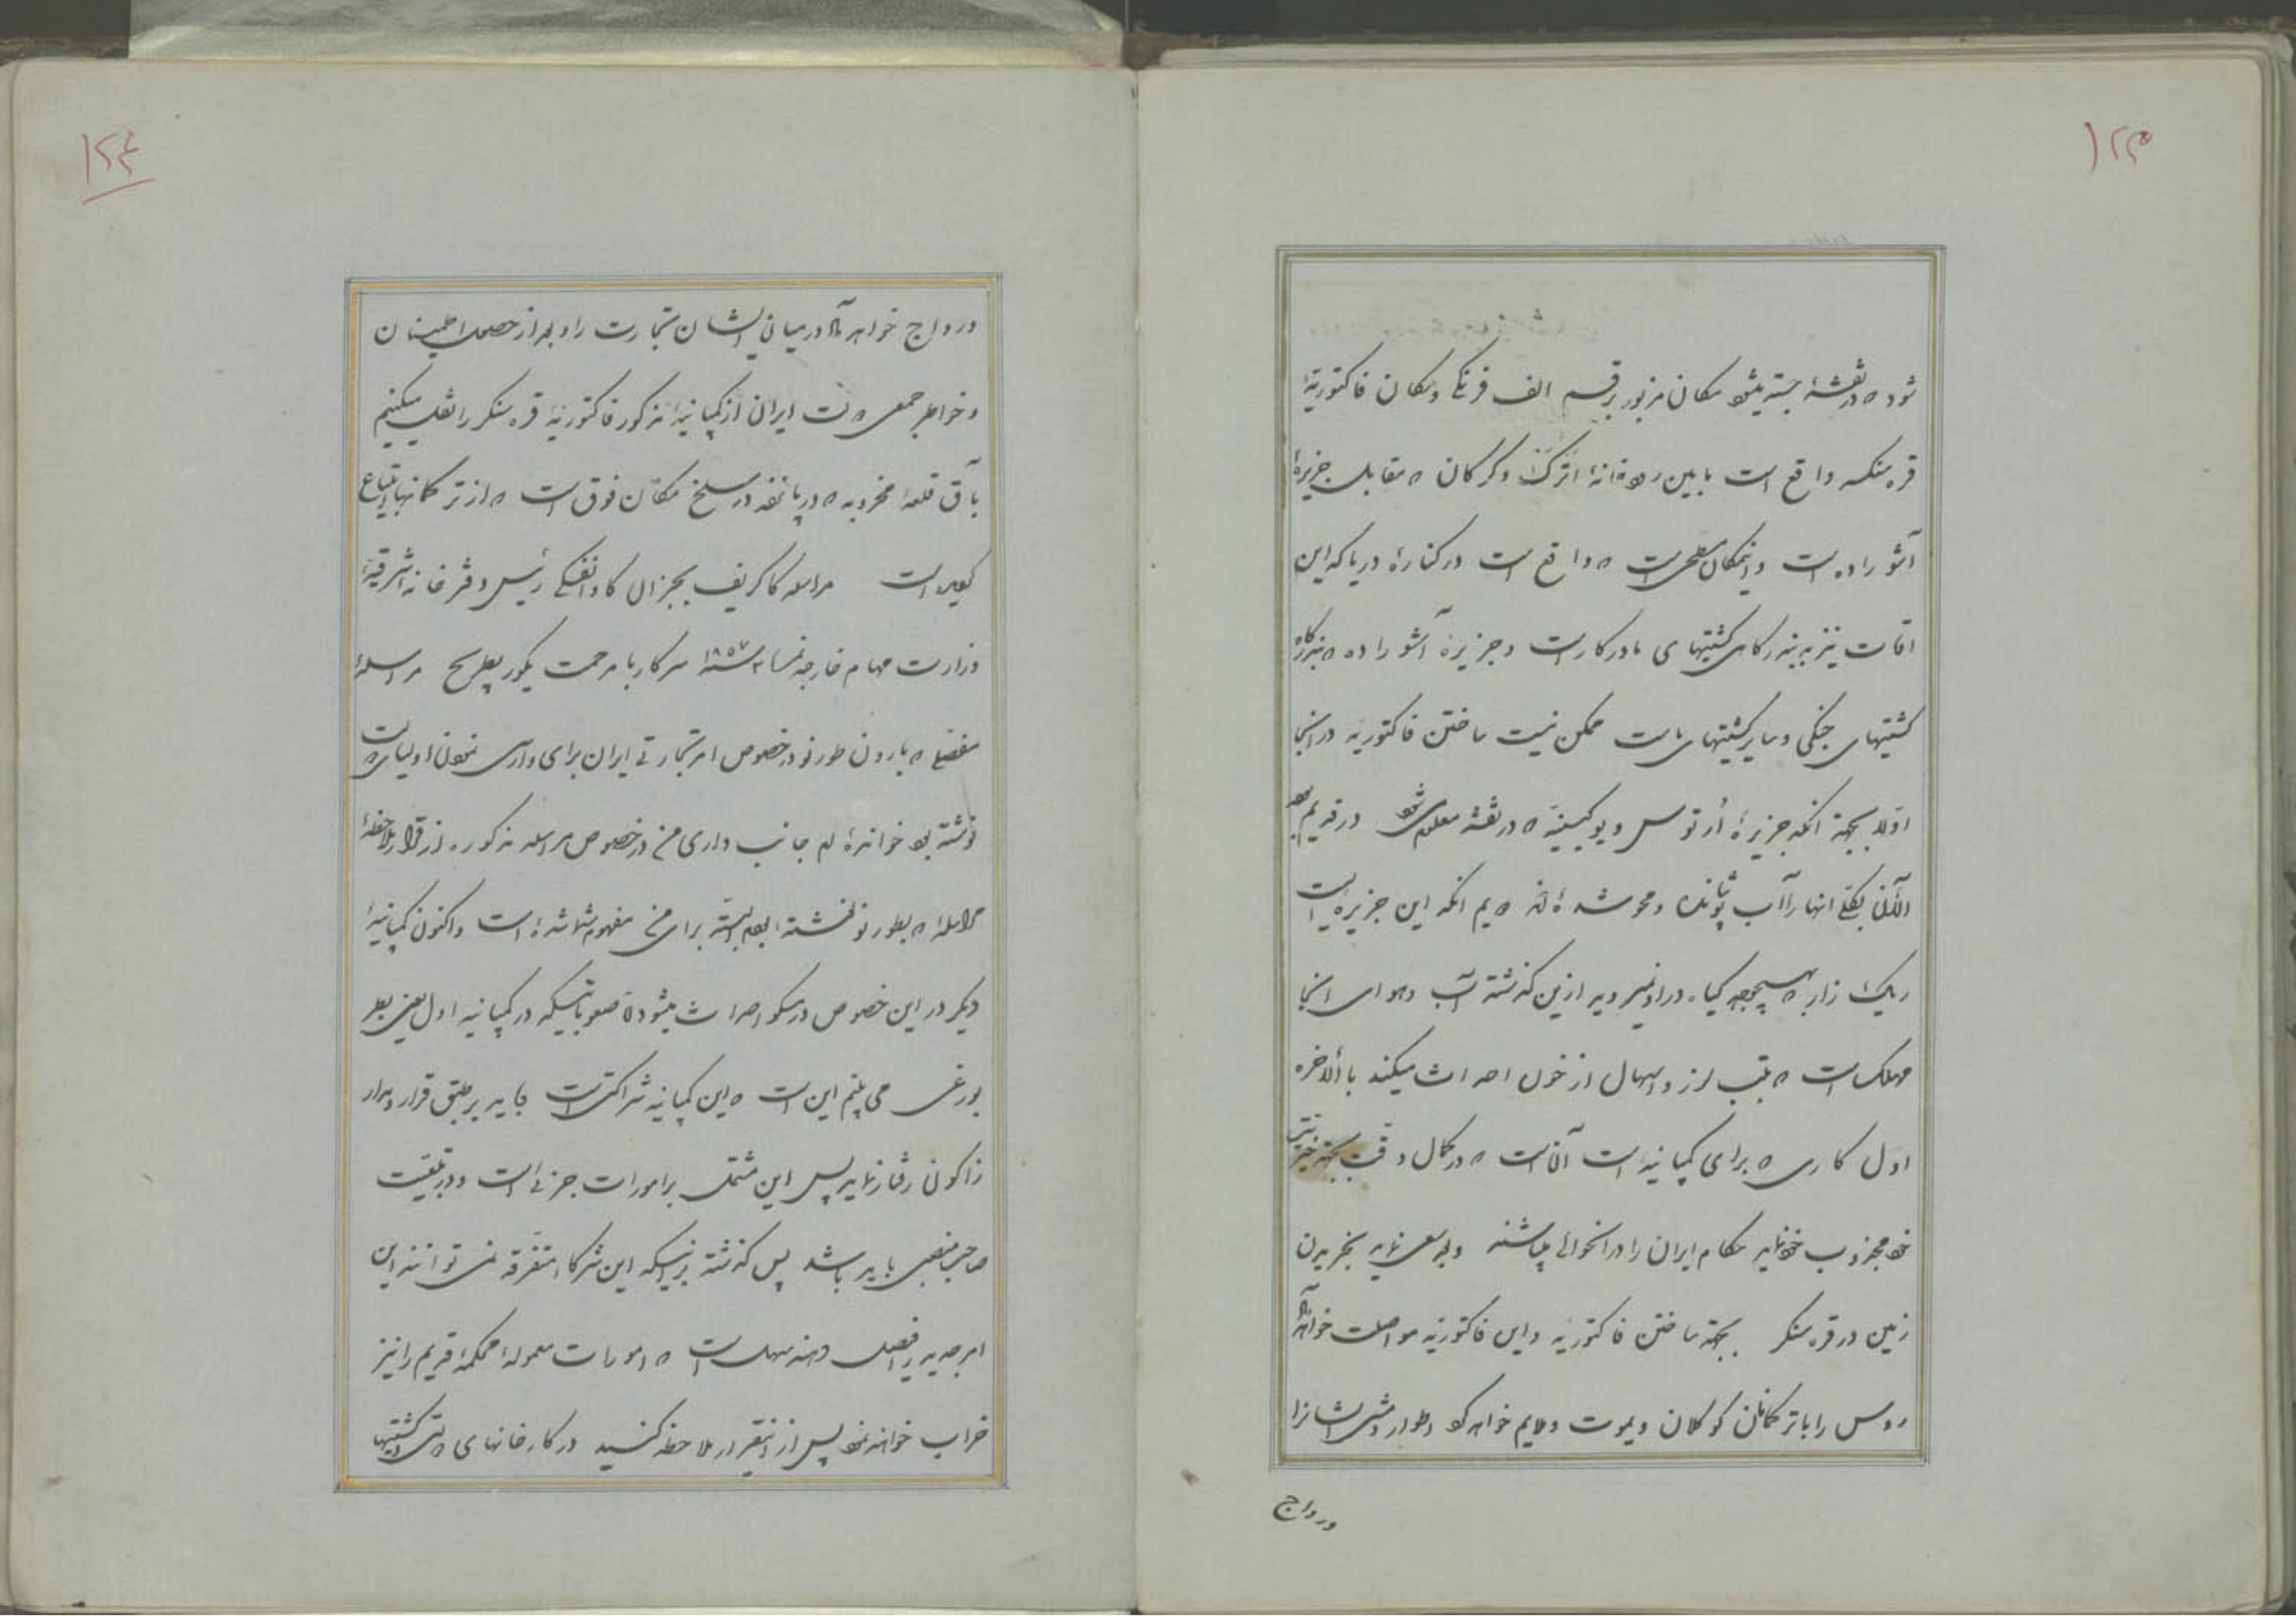 ۱۲۳
شود که در نقشهٔ جسته میشود مکان مزبور برقم الف فرنگی و مکان فاکتوریهٔ
قره سنکر واقع است مابین رودخانهٔ اترک و کرکان که مقابل جزیرهٔ
آشوراده است و اینمکان سطحی است که واقع است در کنارهٔ دریا که این
اوقات نیز به بندرگاه کشتیهای ما در کار است و جزیرهٔ آشوراده که بندرگاه
کشتیهای جنگی و سایر کشتیهای ماست ممکن نیست ساختن فاکتوریه در آنجا
اولا بجهة آنکه جزیرهٔ اُرتوس و یوکینیه که در نقشه معلوم میشود در قدیم بود
الآن بکلی آنها را آب پوشانده و محو شده‌اند دویم آنکه این جزیره ایست
ریک زار که هیچوجه کیاه در او نمیروید از این گذشته آب و هوای آنجا
مهلک است که تب لرز و اسهال از خون احداث میکند بالاخره
اول کاری که برای کمپانیه است آن است که در کمال دقت بجهة خیریت
خود مجذوب خود نماید حکام ایران را در آنحوالی میباشند و بعد سعی نماید بخریدن
زمین در قره سنکر بجهة ساختن فاکتوریه و این فاکتوریه مواصلت خواهد
روس را با ترکمانان کوکلان و یموت و ملایم خواهد کرد اطوار وحشی ایشانرا
ورواج
۱۲۴
ورواج خواهد داد در میان ایشان تجارت را و بعد از حصول اطمینان
و خواطر جمعی دولت ایران از کمپانیهٔ مذکور فاکتوریهٔ قره سنکر را نقل میکنیم
باق قلعهٔ مخروبه که در پانفه در سلخ مکان فوق است که از ترکمانها ابتیاع
کرده است مراسلهٔ کاکریف بجنرال کاوالفسکی رئیس دفترخانهٔ شرقیهٔ
وزارت مهام خارجه نمسا ۳ سنهٔ ۱۸۵۷ سرکار با مرحمت یکور پطریج مراسلهٔ
مفصلی که بارون طورنو در خصوص امر تجارتی ایران برای وارسی نمودن اولیای دولت
نوشته بود خوانده‌ام جانب داری من در خصوص مراسله مذکوره از قرار ملاحظهٔ
مراسلهٔ که بطورنو نوشته بودم البته برای من مفهوم شما شده است و اکنون کمپانیهٔ
دیکر در این خصوص در مسکو احداث میشود که صعوباتیکه در کمپانیه اول یعنی پطر
بورغ می بینم این است که این کمپانیه شراکتی است باید بر طبق قرارداد
زاکون رفتار نماید پس این مشتمل بر امورات جزئی است و در حقیقت
صاحب منصبی باید باشد پس گذشته از اینکه این شرکاء متفرقه نمی توانند این
امر جدید را فیصل دهند سهل است که امورات معمولهٔ محکمهٔ قدیم را نیز
خراب خواهند نمود پس از اینقرار ملاحظه کنید در کارخانهای دولتی کشتیها